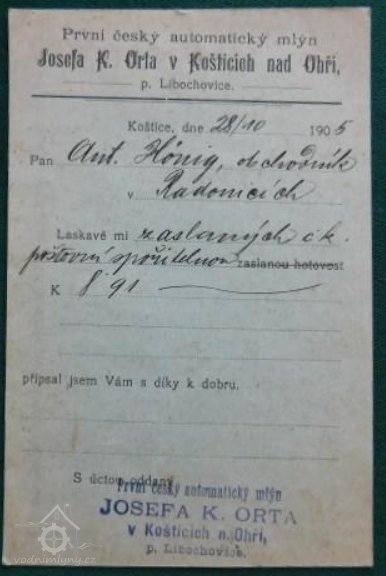 První český automatický mlýn
Josefa K. Orta v Košticích nad Ohří,
p. Libochovice.
Koštice, dne 28/10 1905
Pan Ant. Hönig, obchodník
v Radonicích
Laskavě mi zaslaných c k.
poštovní spořitelnou zaslanou hotovost
K 8 91
připsal jsem Vám s díky k dobru.
S úctou oddaný
První český automatický mlýn
JOSEFA K. ORTA
v Košticích n. Ohří,
p. Libochovice.
vodnimlyny.cz